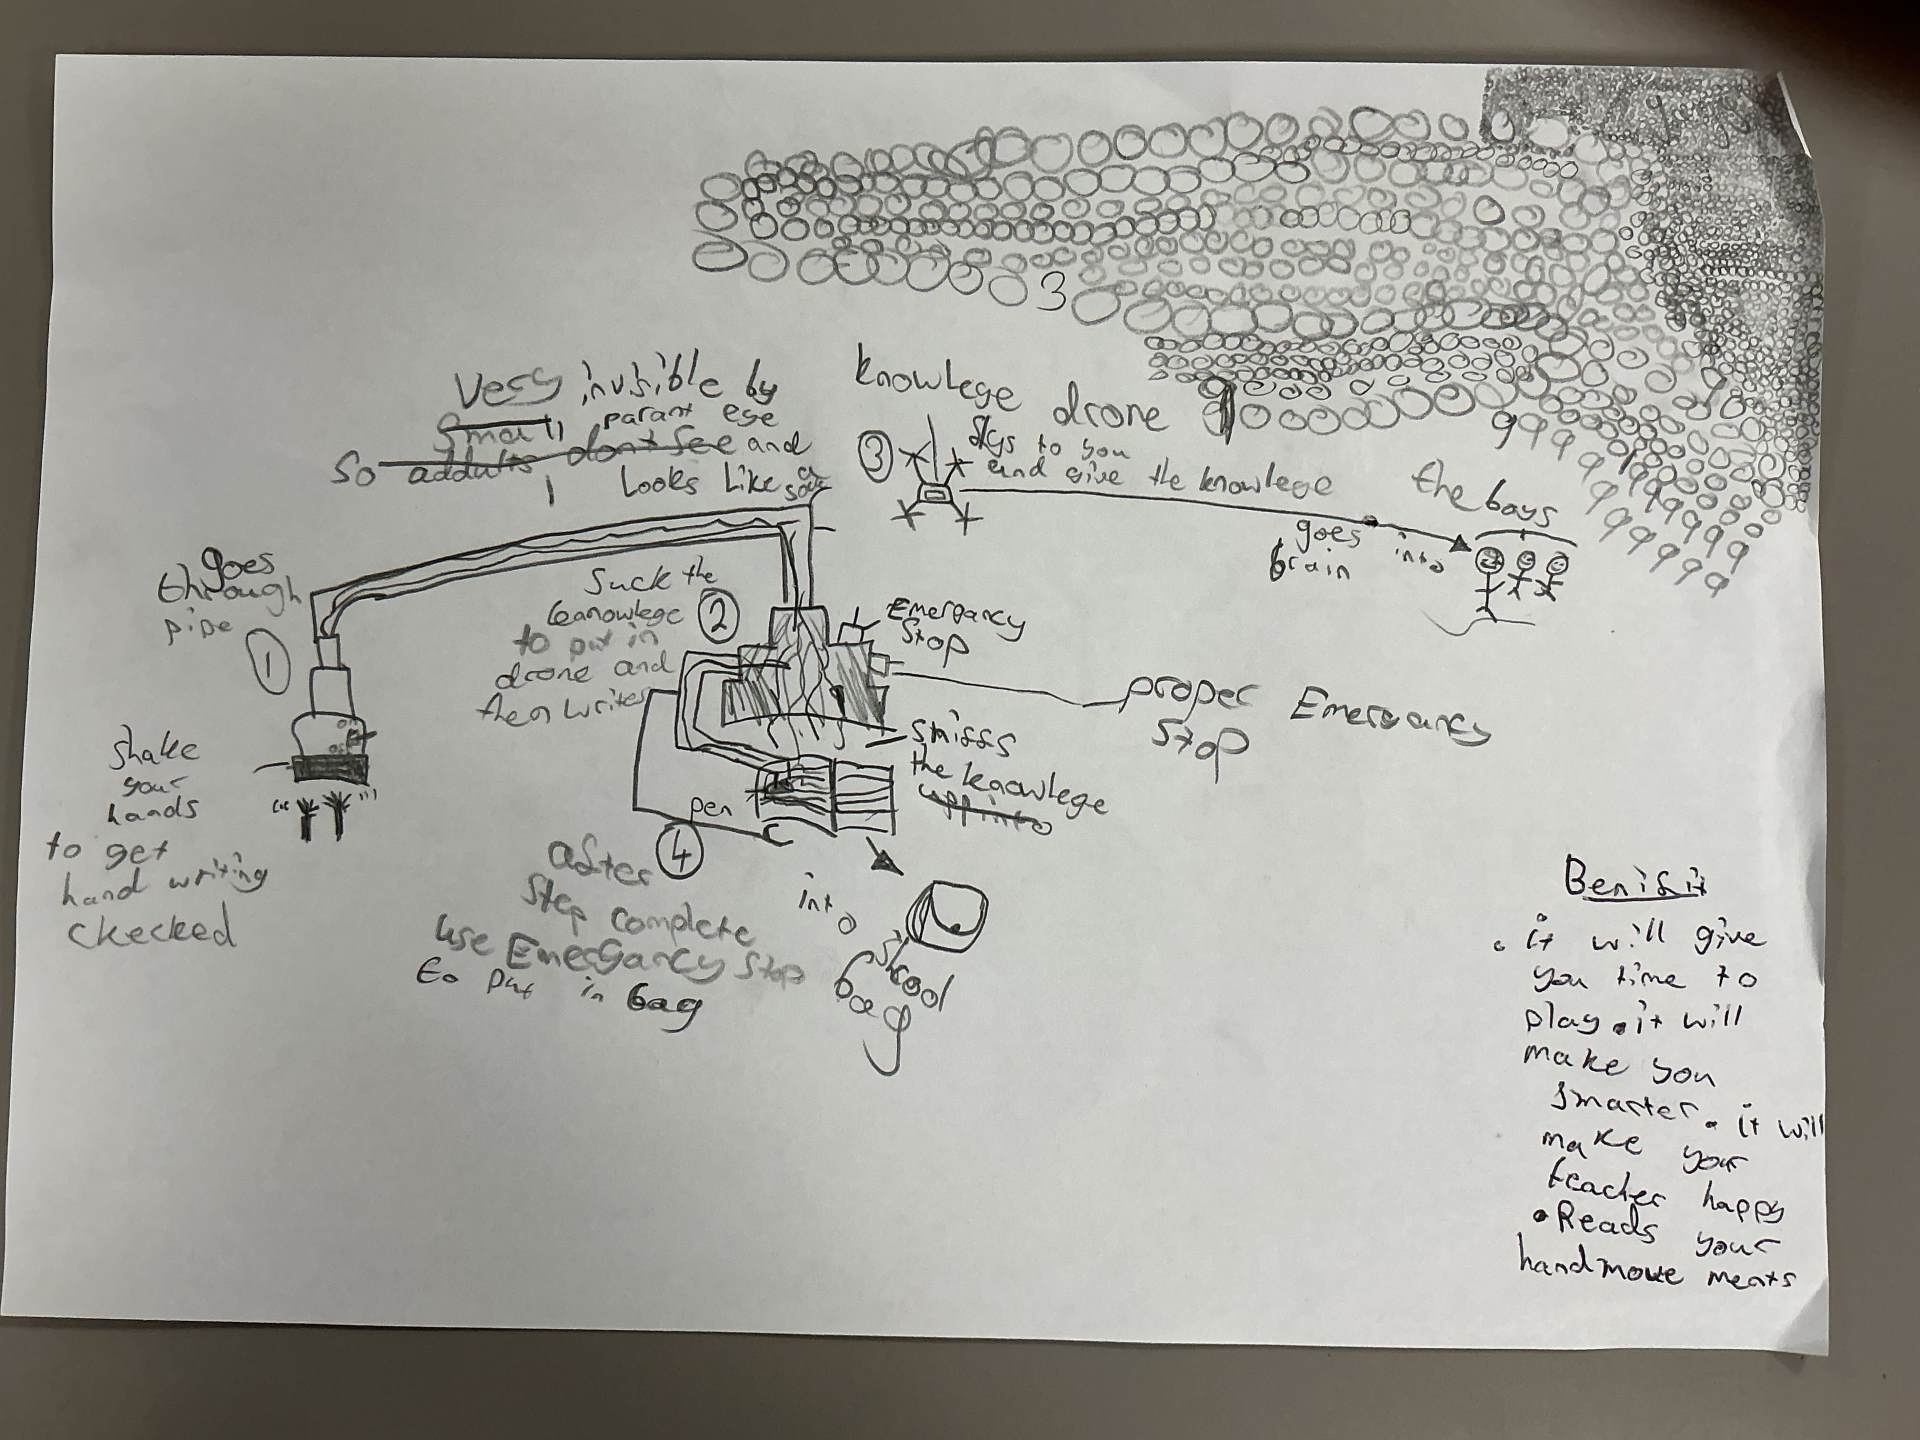 Very invisible by
Small parant eye
So addults dont See and
Looks Like a
knowlege drone
3
flys to you
and give the knowlege
the boys
goes into
brain
goes
through
pipe
1
Suck the
knowlege
to put in
drone and
then writes
2
Emergancy
Stop
proper Emergancy
Stop
Shake
your
hands
to get
hand writing
ckecked
on
off
sniffs
the knowlege
pen
4
after
Step complete
use Emergancy Stop
to put in bag
into
Skool
bag
Benifit
• it will give
you time to
play • it will
make you
smarter • it will
make your
teacher happy
• Reads your
hand move ments
3
999